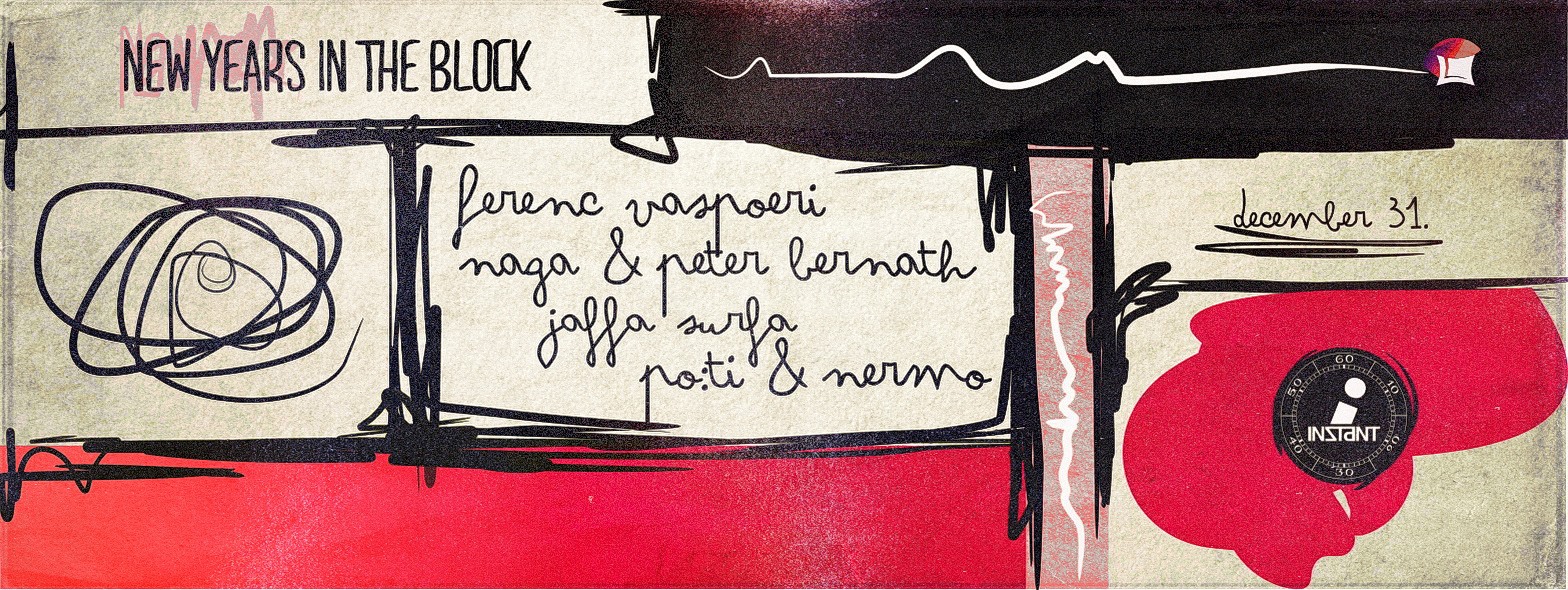 NEW YEARS IN THE BLOCK
ferenc vaspoeri
naga & peter bernath
jaffa surfa
po:ti & nermo
december 31.
60
50 10
INSTANT
40 20
30